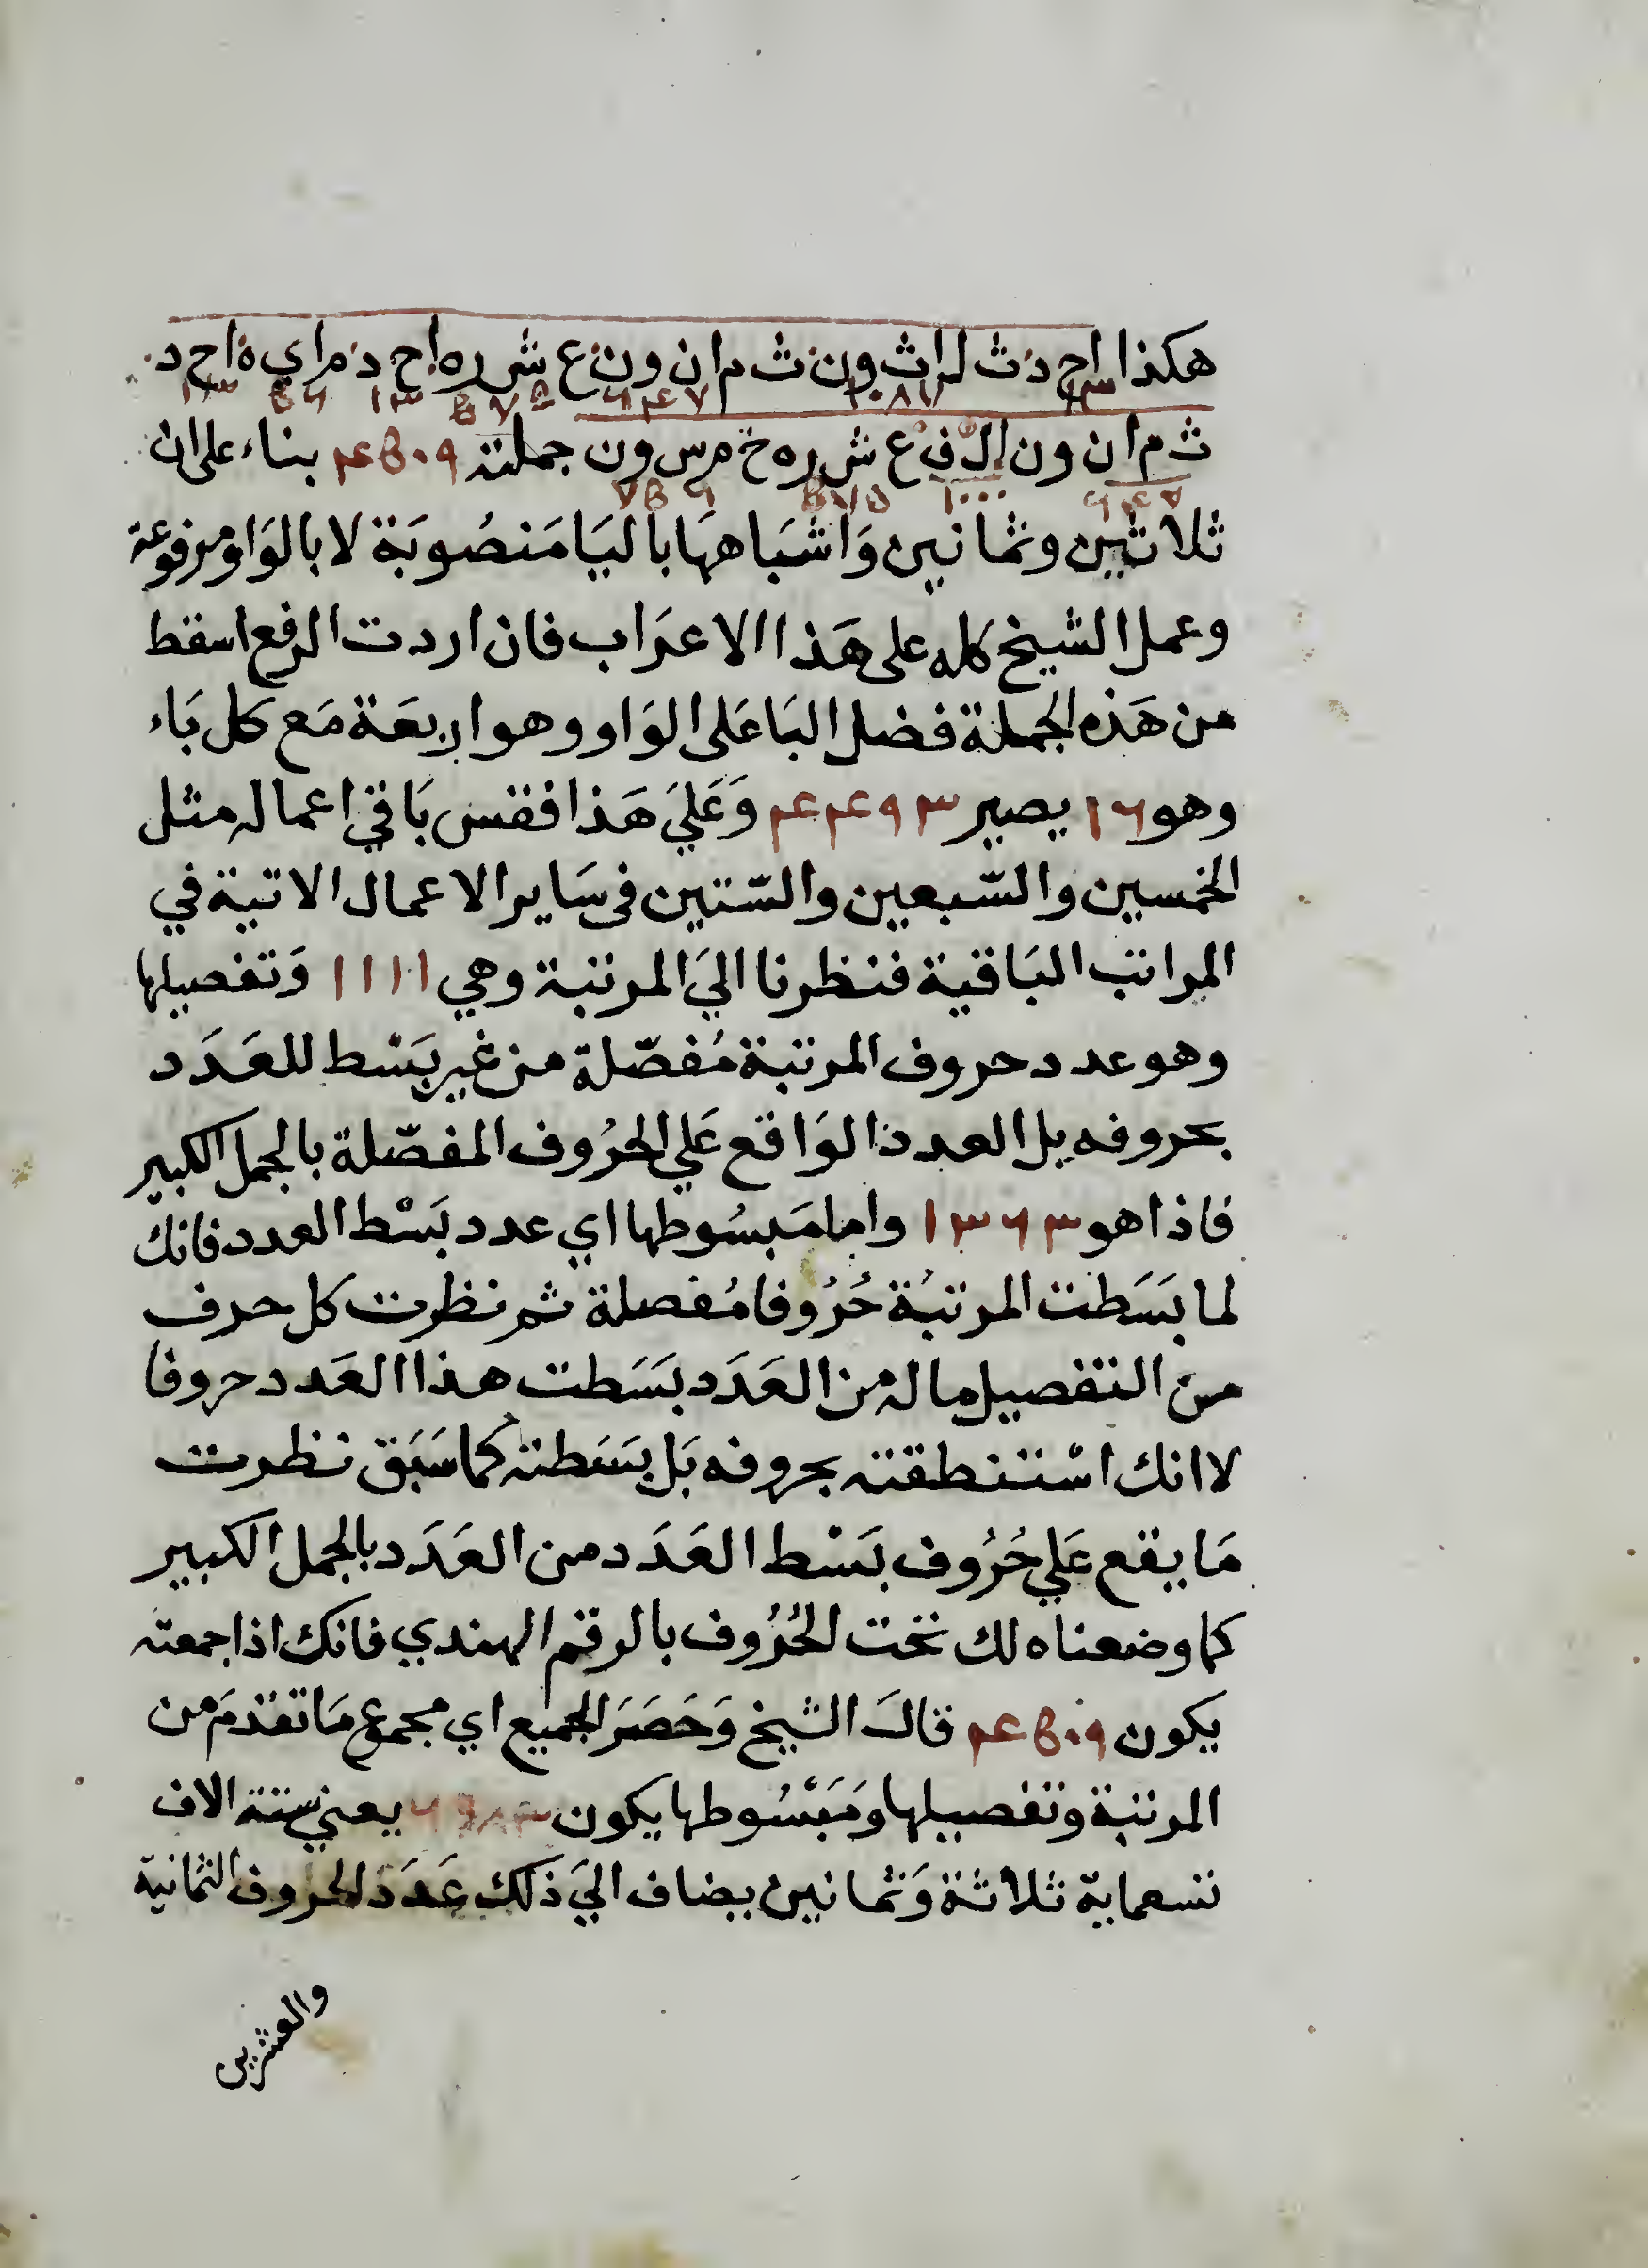 هكذا اح د ث ل ا ث و ن ث م ا ن و ن ع ش ر ه ا ح د م ا ي ه ا ح د
١٣ ٦٤٧ ٥٧٥ ١٣ ٥٦ ١٣
ث م ا ن و ن ا ل ف ع ش ر ه خ م س و ن جملته ٤٥٠٩ بناء على ان
٦٤٧ ٥٧٥
ثلاثين وثمانين وَاشبَاهها باليَا مَنصُوبَة لا بالوَاو مرفوعة
وعمل الشيخ كله على هَذا الاعرَاب فان اردت الرفع اسقط
من هَذه الجملة فضل اليَا عَلى الوَاو وهو اربعَة مَع كل يَاء
وهو ١٦ يصير ٤٤٩٣ وَعَليَ هَذا فقس بَاقي اعماله مثل
الخمسين والسّبعين والسّتين في سَاير الاعمال الاتية في
المراتب البَاقية فنظرنا اليَ المرتبة وهي ١١١١ وَتفصيلها
وهو عدد حروف المرتبة مُفصّلة من غير بَسْط للعَدَد
بحروفه بل العدد الوَاقع عَلي الحرُوف المفصّلة بالجمل الكبير
فاذا هو ١٣٦٣ واما مَبسُوطها اي عدد بَسْط العدد فانك
لما بَسَطت المرتبَة حُرُوفا مُفصلة ثم نظرت كل حرف
من التفصيل ما له من العَدَد بَسَطت هذا العَدد حروفا
لا انك اسْتنطقته بحروفه بَل بسَطته كما سَبَق نظرت
مَا يقع عَلي حُرُوف بَسْط العَدَد من العَدَد بالجمل الكبير
كما وضعناه لك تحت الحُرُوف بالرقم الهندي فانك اذا جمعته
يكون ٤٥٠٩ قالَ الشيخ وَحَصَرَ الجميع اي مجموع مَا تقدمَ من
المرتبة وتفصيلها ومَبْسُوطها يكون ٦٩٨٣ يعني ستة الاف
تسعماية ثلاثة وَثمانين يضاف اليَ ذلك عَدَد الحروف الثمانية
والعشرين